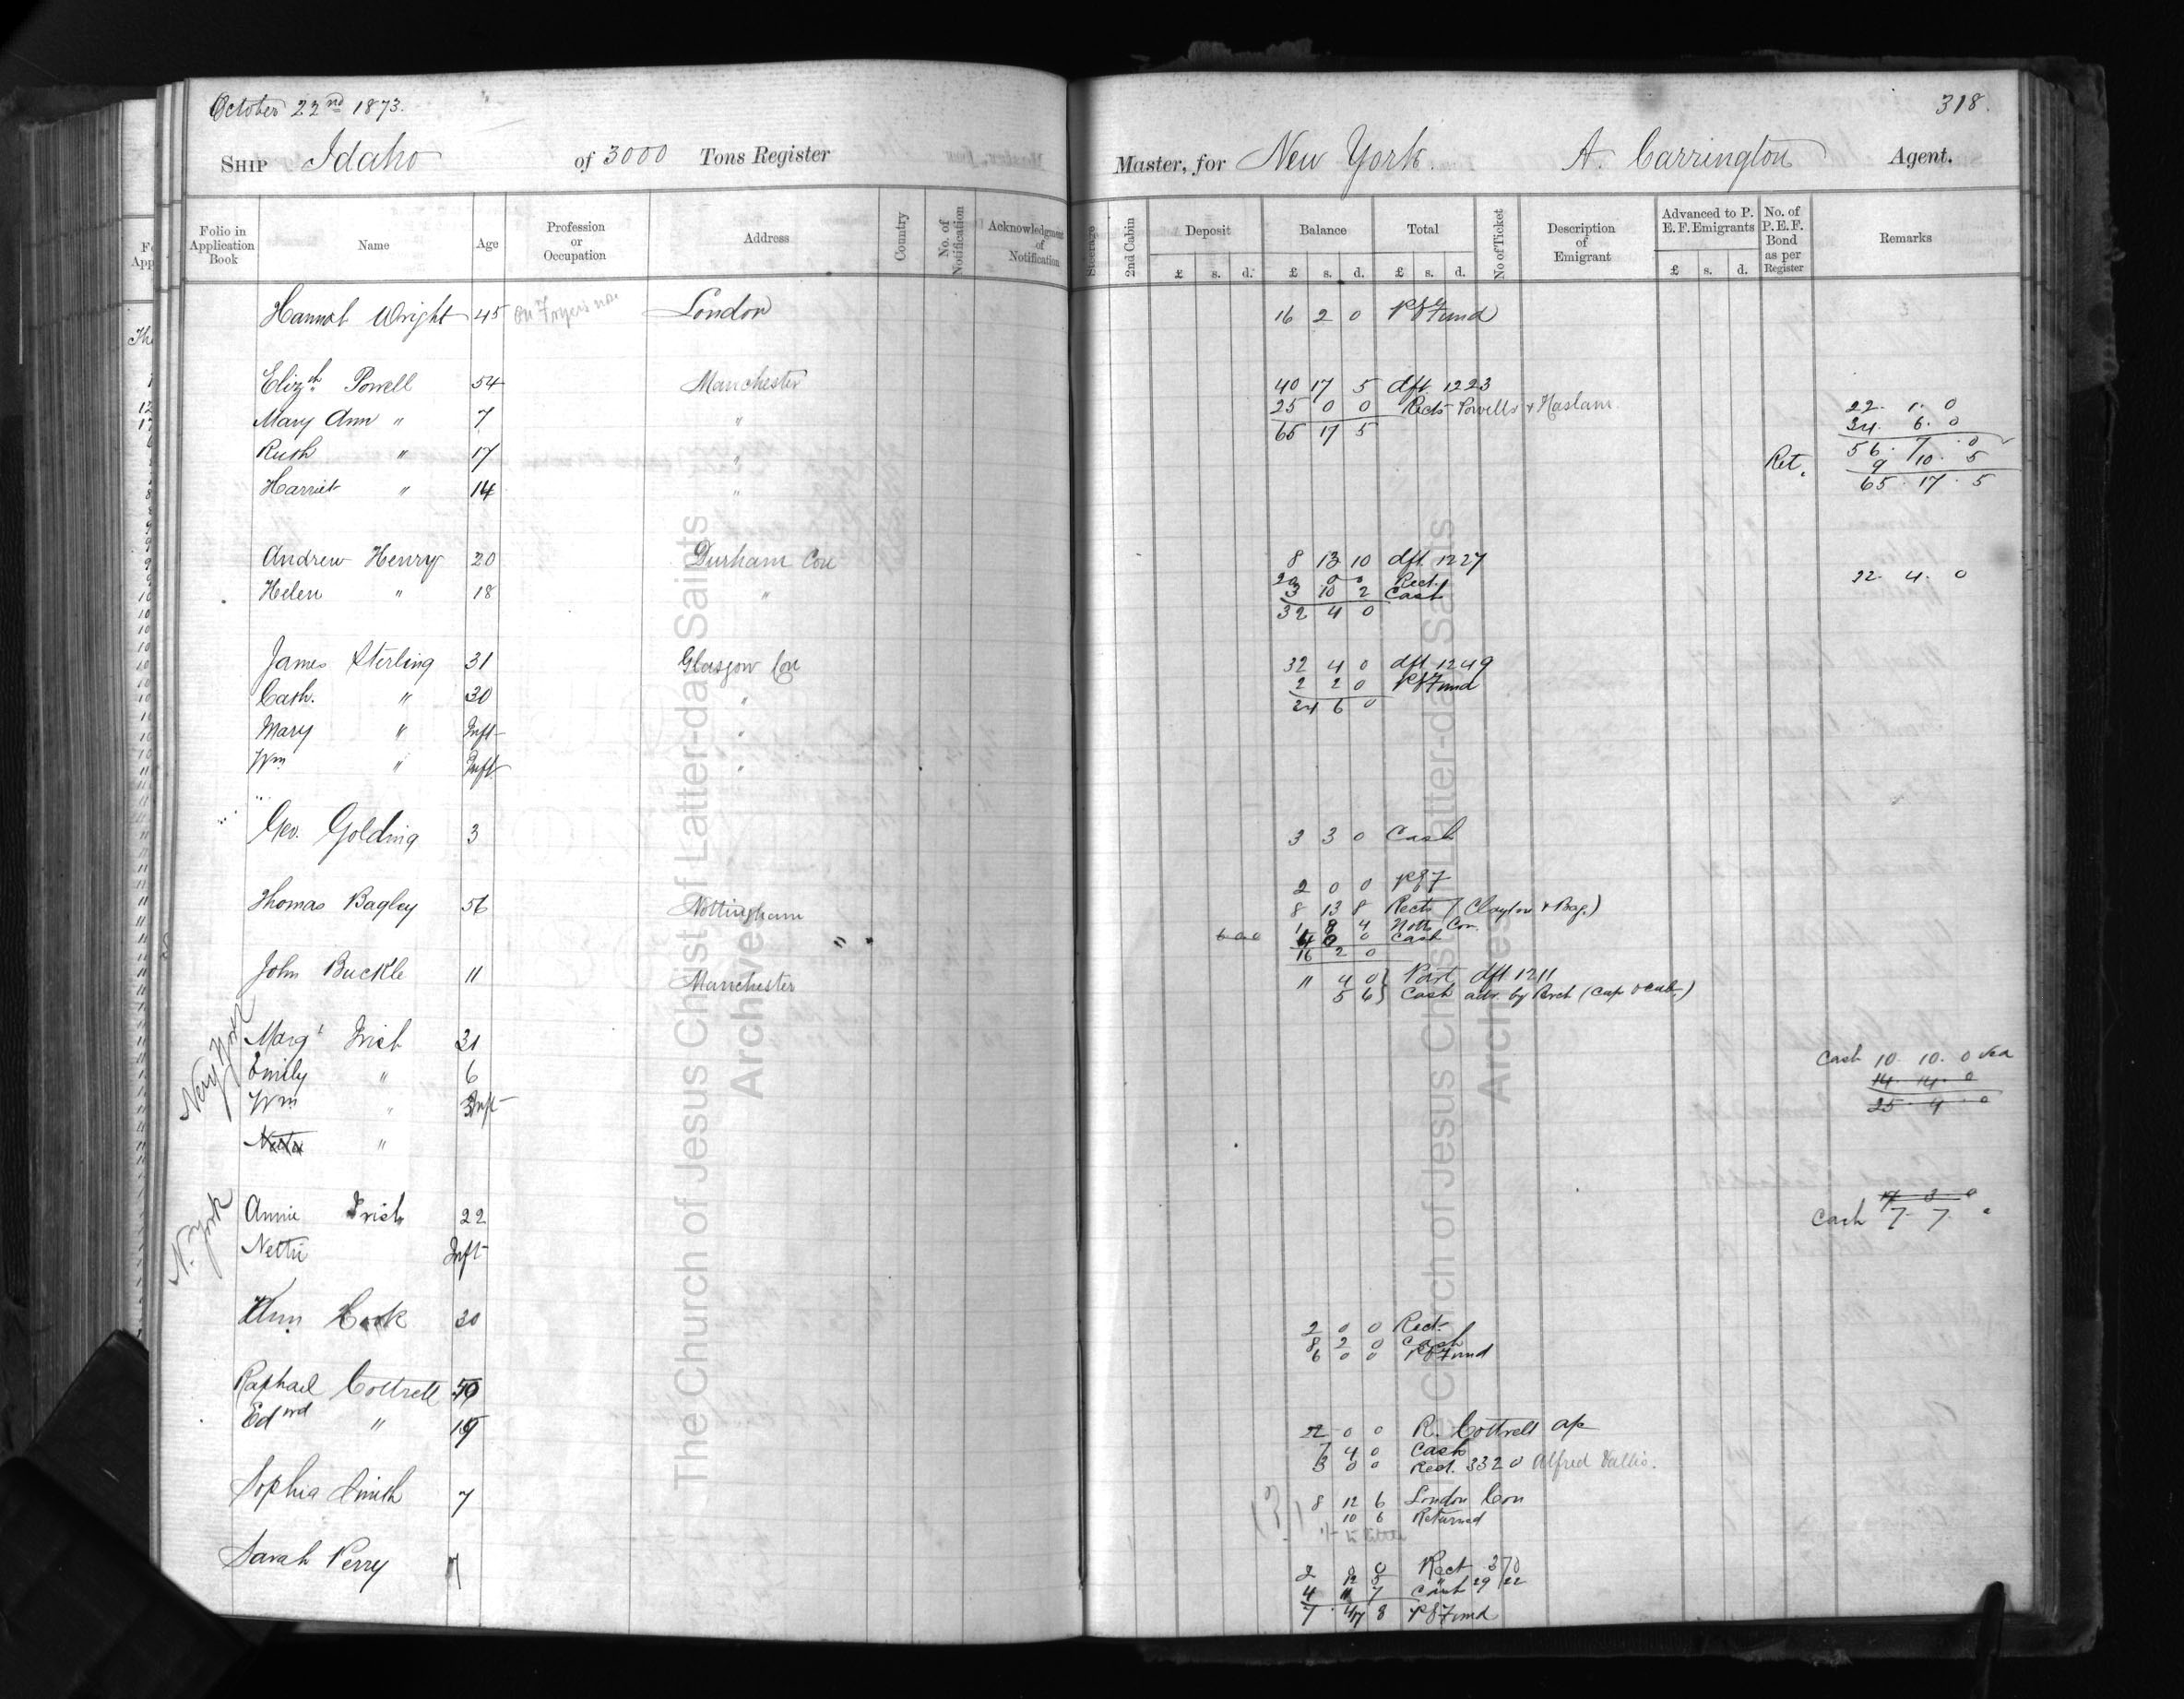 October 22nd 1873.
318.
SHIP Idaho of 3000 Tons Register Master, for New York. A. Carrington Agent.
Folio in Application Book Name Age Profession or Occupation Address Country No. of Notification Acknowledgment of Notification Steerage 2nd Cabin Deposit Balance Total No of Ticket Description of Emigrant Advanced to P. E. F. Emigrants No. of P.E.F. Bond as per Register Remarks
£ s. d. £ s. d. £ s. d. £ s. d.
Hannah Wright 45 London 16 2 0 P E Fund
Elizth Powell 54 Manchester 40 17 5 dft 1223
Mary Ann " 7 " 25 0 0 Rects Powells & Haslam 22. 1. 0
65 17 5 34. 6. 0
Ruth " 17 " 56. 7. 0
Ret. 9 10. 5
Harriet " 14 " 65. 17. 5
Andrew Henry 20 Durham Con 8 13 10 dft 1227
Helen " 18 " 20 0 0 Rect. 22. 4. 0
3 10 2 Cash
32 4 0
James Sterling 31 Glasgow Con 32 4 0 dft 1249
Cath. " 30 " 2 2 0 P E Fund
Mary " Inft " 24 6 0
Wm " Inft "
Geo. Golding 3 3 3 0 Cash
2 0 0 P E F
Thomas Bagley 56 Nottingham 8 13 8 Rects (Clayton & Bag.)
1 8 4 Notts Con.
6 0 0 4 0 0 Cash
16 2 0
John Buckle 11 Manchester 11 4 0 } Part dft 1211
5 6 } Cash adv. by Birch (Cap & cab.)
New York
Margt Irish 31
Emily " 6 Cash 10. 10. 0
Wm " Inft 14. 14. 0
25. 4. 0
"
N. York
Annie Irish 22 Cash 7. 7.
Nettie Inft
Ann Hook 30 2 0 0 Rect.
8 2 0 Cash
6 0 0 P E Fund
Raphael Cottrell 59
Edwd " 19 22 0 0 R. Cottrell a/c
7 4 0 Cash
3 0 0 Rect. 3320 Alfred Vallis.
Sophia Smith 7 8 12 6 London Con
10 6 Returned
Sarah Perry Rect 370
Cash
P E Fund
The Church of Jesus Christ of Latter-day Saints
Archives
The Church of Jesus Christ of Latter-day Saints
Archives